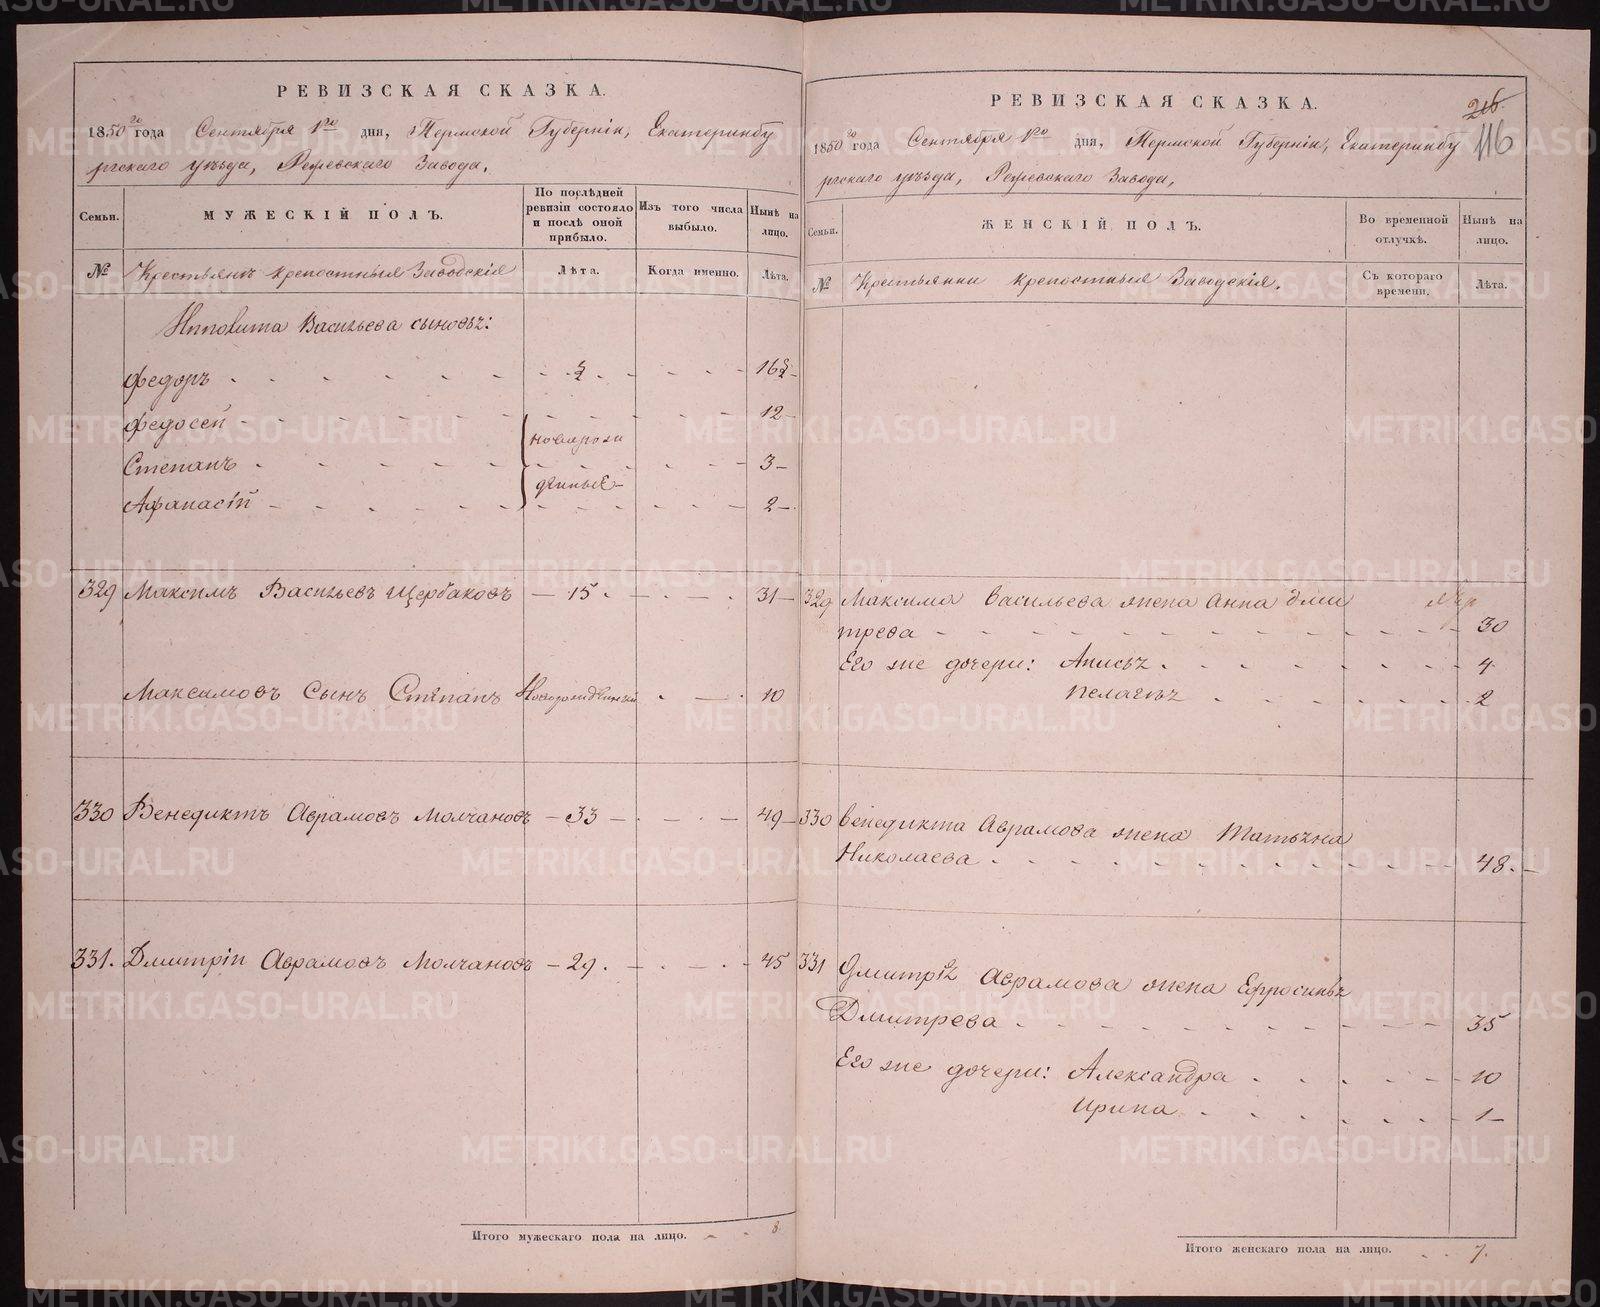 РЕВИЗСКАЯ СКАЗКА.
1850 го года Сентября 1го дня, Пермской Губерніи, Екатеринбу
ргскаго уѣзда, Режевскаго Завода.
Семьи.
МУЖЕСКІЙ ПОЛЪ.
По послѣдней ревизіи состояло и послѣ оной прибыло.
Изъ того числа выбыло.
Нынѣ на лицо.
№
Крестьянъ крепостныя Заводскія
Лѣта.
Когда именно.
Лѣта.
Ипполита Васильева сыновья:
Федоръ - ½ - 16½
Федосей - 12
новорож
Степанъ - 3
денные
Афанасій - 2
329 Максимъ Васильевъ Щербаковъ - 15. - 31
Максимовъ Сынъ Степанъ Новорожденный - 10
330 Венедиктъ Аврамовъ Молчановъ - 33 - 49
331. Дмитрій Аврамовъ Молчановъ - 29. - 45
Итого мужескаго пола на лицо. 8.
РЕВИЗСКАЯ СКАЗКА.
216.
116
1850 го года Сентября 1го дня, Пермской Губерніи, Екатеринбу
ргскаго уѣзда, Режевскаго Завода,
Семьи.
ЖЕНСКІЙ ПОЛЪ.
Во временной отлучкѣ.
Нынѣ на лицо.
№
Крестьянки крепостныя Заводскія.
Съ котораго времени.
Лѣта.
329 Максима Васильева жена Анна Дми
трева - 30
Его же дочери: Анисья - 4
Пелагѣя - 2
330 Венедикта Аврамова жена Татьяна
Николаева - 48.
331 Дмитрія Аврамова жена Ефросинья
Дмитрева - 35
Его же дочери: Александра - 10
Ирина - 1
Итого женскаго пола на лицо. 7.
METRIKI.GASO-URAL.RU